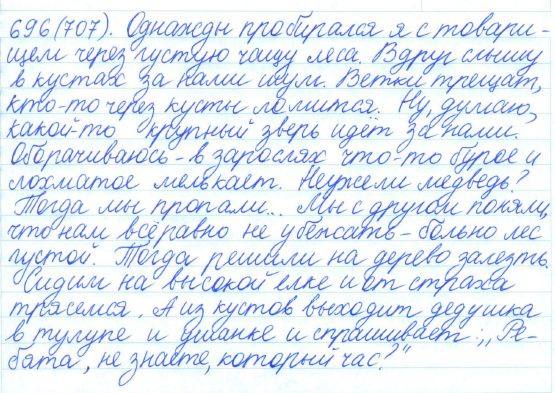 696(707). Однажды пробирался я с товари-
щем через густую чащу леса. Вдруг слышу
в кустах за нами шум. Ветки трещат,
кто-то через кусты ломится. Ну, думаю,
какой-то крупный зверь идёт за нами.
Оборачиваюсь - в зарослях что-то бурое и
лохматое мелькает. Неужели медведь?
Тогда мы пропали... Мы с другом поняли,
что нам всё равно не убежать - больно лес
густой. Тогда решили на дерево залезть.
Сидим на высокой елке и от страха
трясемся. А из кустов выходит дедушка
в тулупе и ушанке и спрашивает: „Ре-
бята, не знаете, который час?"